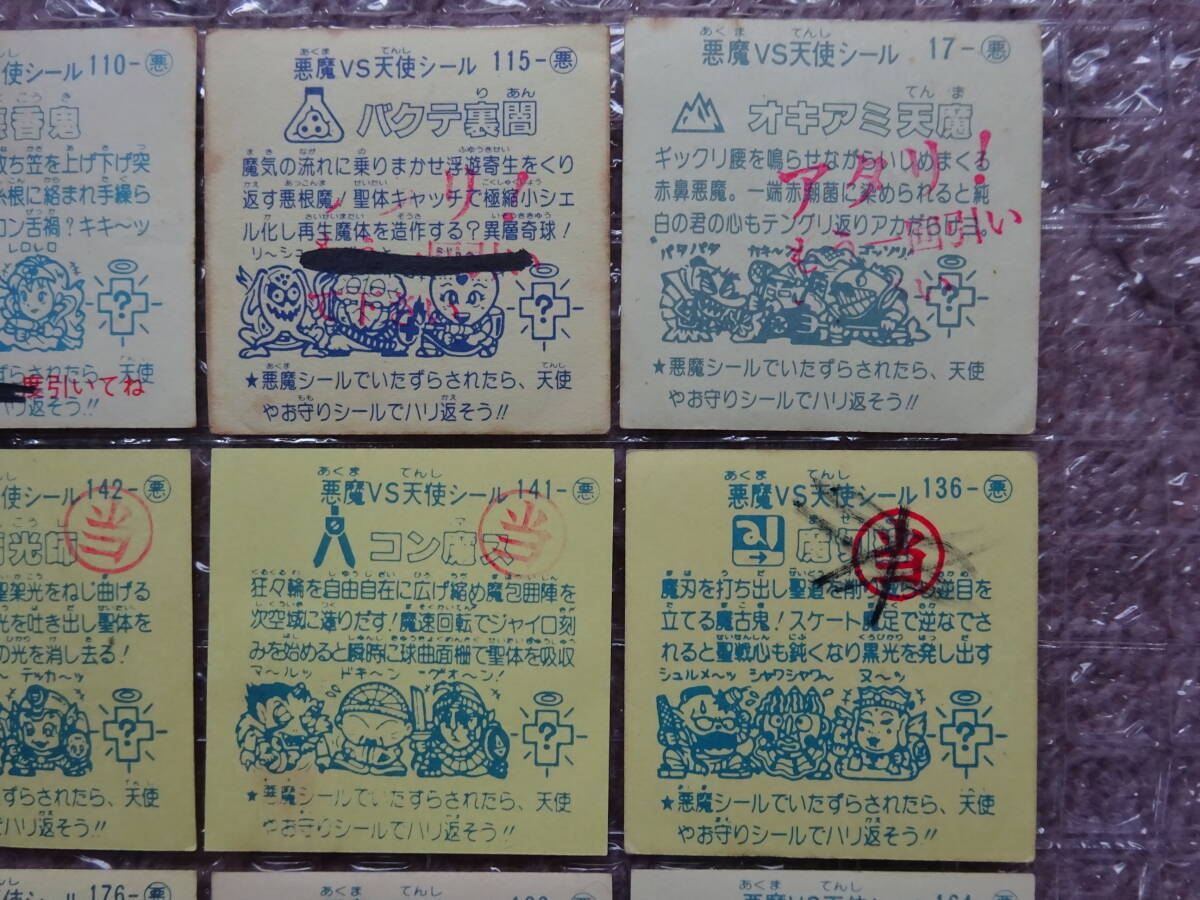 使シール 110-悪
香鬼
ち笠を上げ下げ突
糸根に絡まれ手繰ら
コン舌禍？キキ〜ッ
レロレロ
ずらされたら、天使
度引いてね
ハリ返そう!!
悪魔VS天使シール 115-悪
バクテ裏闇
魔気の流れに乗りまかせ浮遊寄生をくり
返す悪根魔！聖体キャッチで極縮小シェ
ル化し再生魔体を造作する？異層奇球！
リ〜シュ
?
★悪魔シールでいたずらされたら、天使
やお守りシールでハリ返そう!!
悪魔VS天使シール 17-悪
オキアミ天魔
アタリ！
もう一回引い
ギックリ腰を鳴らせながらいじめまくる
赤鼻悪魔。一端赤潮菌に染められると純
白の君の心もテングリ返りアカだらけヨ。
パタパタ カキ〜ン ゴッソリ！
?
★悪魔シールでいたずらされたら、天使
やお守りシールでハリ返そう!!
使シール 142-悪
光師
当
聖栄光をねじ曲げる
光を吐き出し聖体を
の光を消し去る！
〜 テッカ〜ッ
?
ずらされたら、天使
ハリ返そう!!
悪魔VS天使シール 141-悪
コン魔ス
当
狂々輪を自由自在に広げ縮め魔包曲陣を
次空域に造りだす！魔速回転でジャイロ刻
みを始めると瞬時に球曲面柵で聖体を吸収
マ〜ルッ ドキ〜ン 〜ゲオ〜ン！
?
★悪魔シールでいたずらされたら、天使
やお守りシールでハリ返そう!!
悪魔VS天使シール 136-悪
魔
当
魔刃を打ち出し聖道を削り 逆目を
立てる魔古鬼！スケート魔足で逆なでさ
れると聖戦心も鈍くなり黒光を発し出す
シュルメ〜ッ シャワシャワ〜 ヌ〜ッ
?
★悪魔シールでいたずらされたら、天使
やお守りシールでハリ返そう!!
使シール 176-悪
あくま てんし
悪魔VS天使シール 164-悪